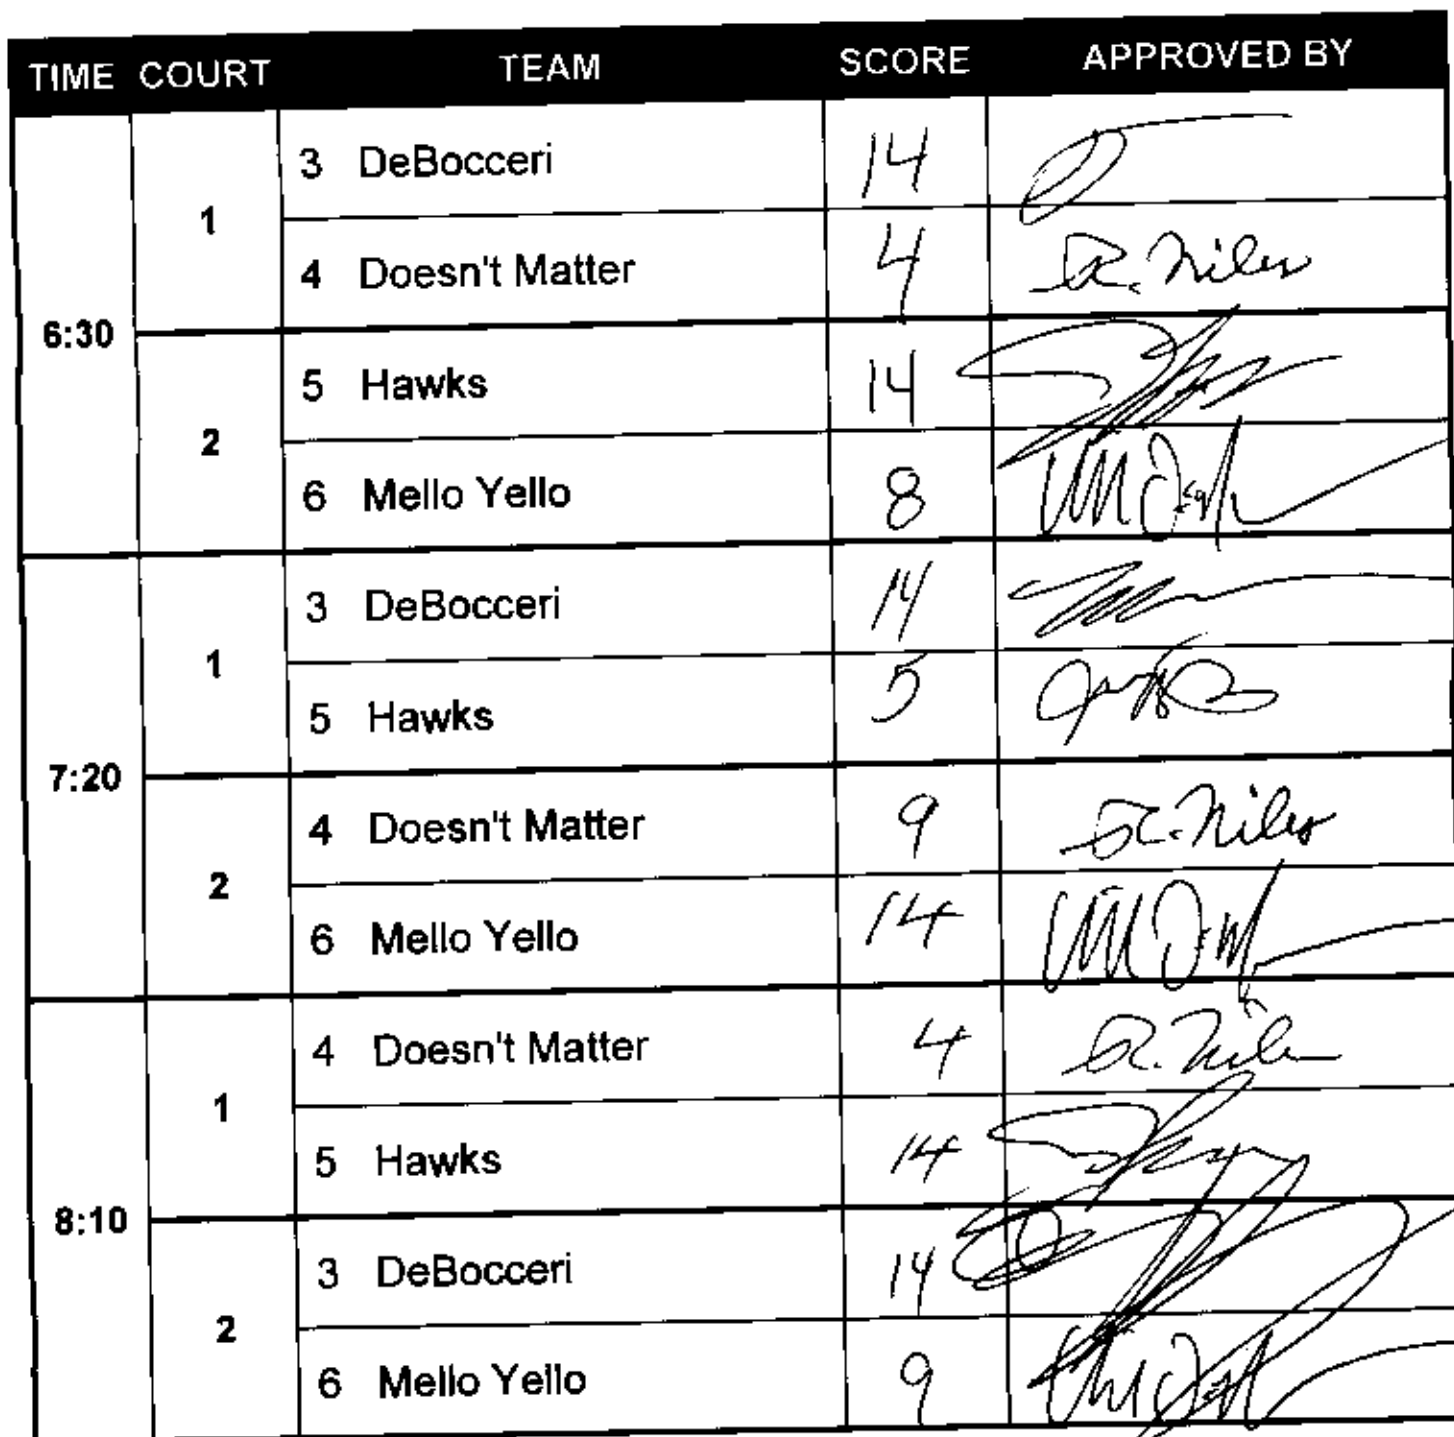 TIME COURT TEAM SCORE APPROVED BY
6:30
1
3 DeBocceri 14
4 Doesn't Matter 4 R. Niles
2
5 Hawks 14
6 Mello Yello 8
7:20
1
3 DeBocceri 14
5 Hawks 5
2
4 Doesn't Matter 9 R. Niles
6 Mello Yello 14
8:10
1
4 Doesn't Matter 4 R. Niles
5 Hawks 14
2
3 DeBocceri 14
6 Mello Yello 9